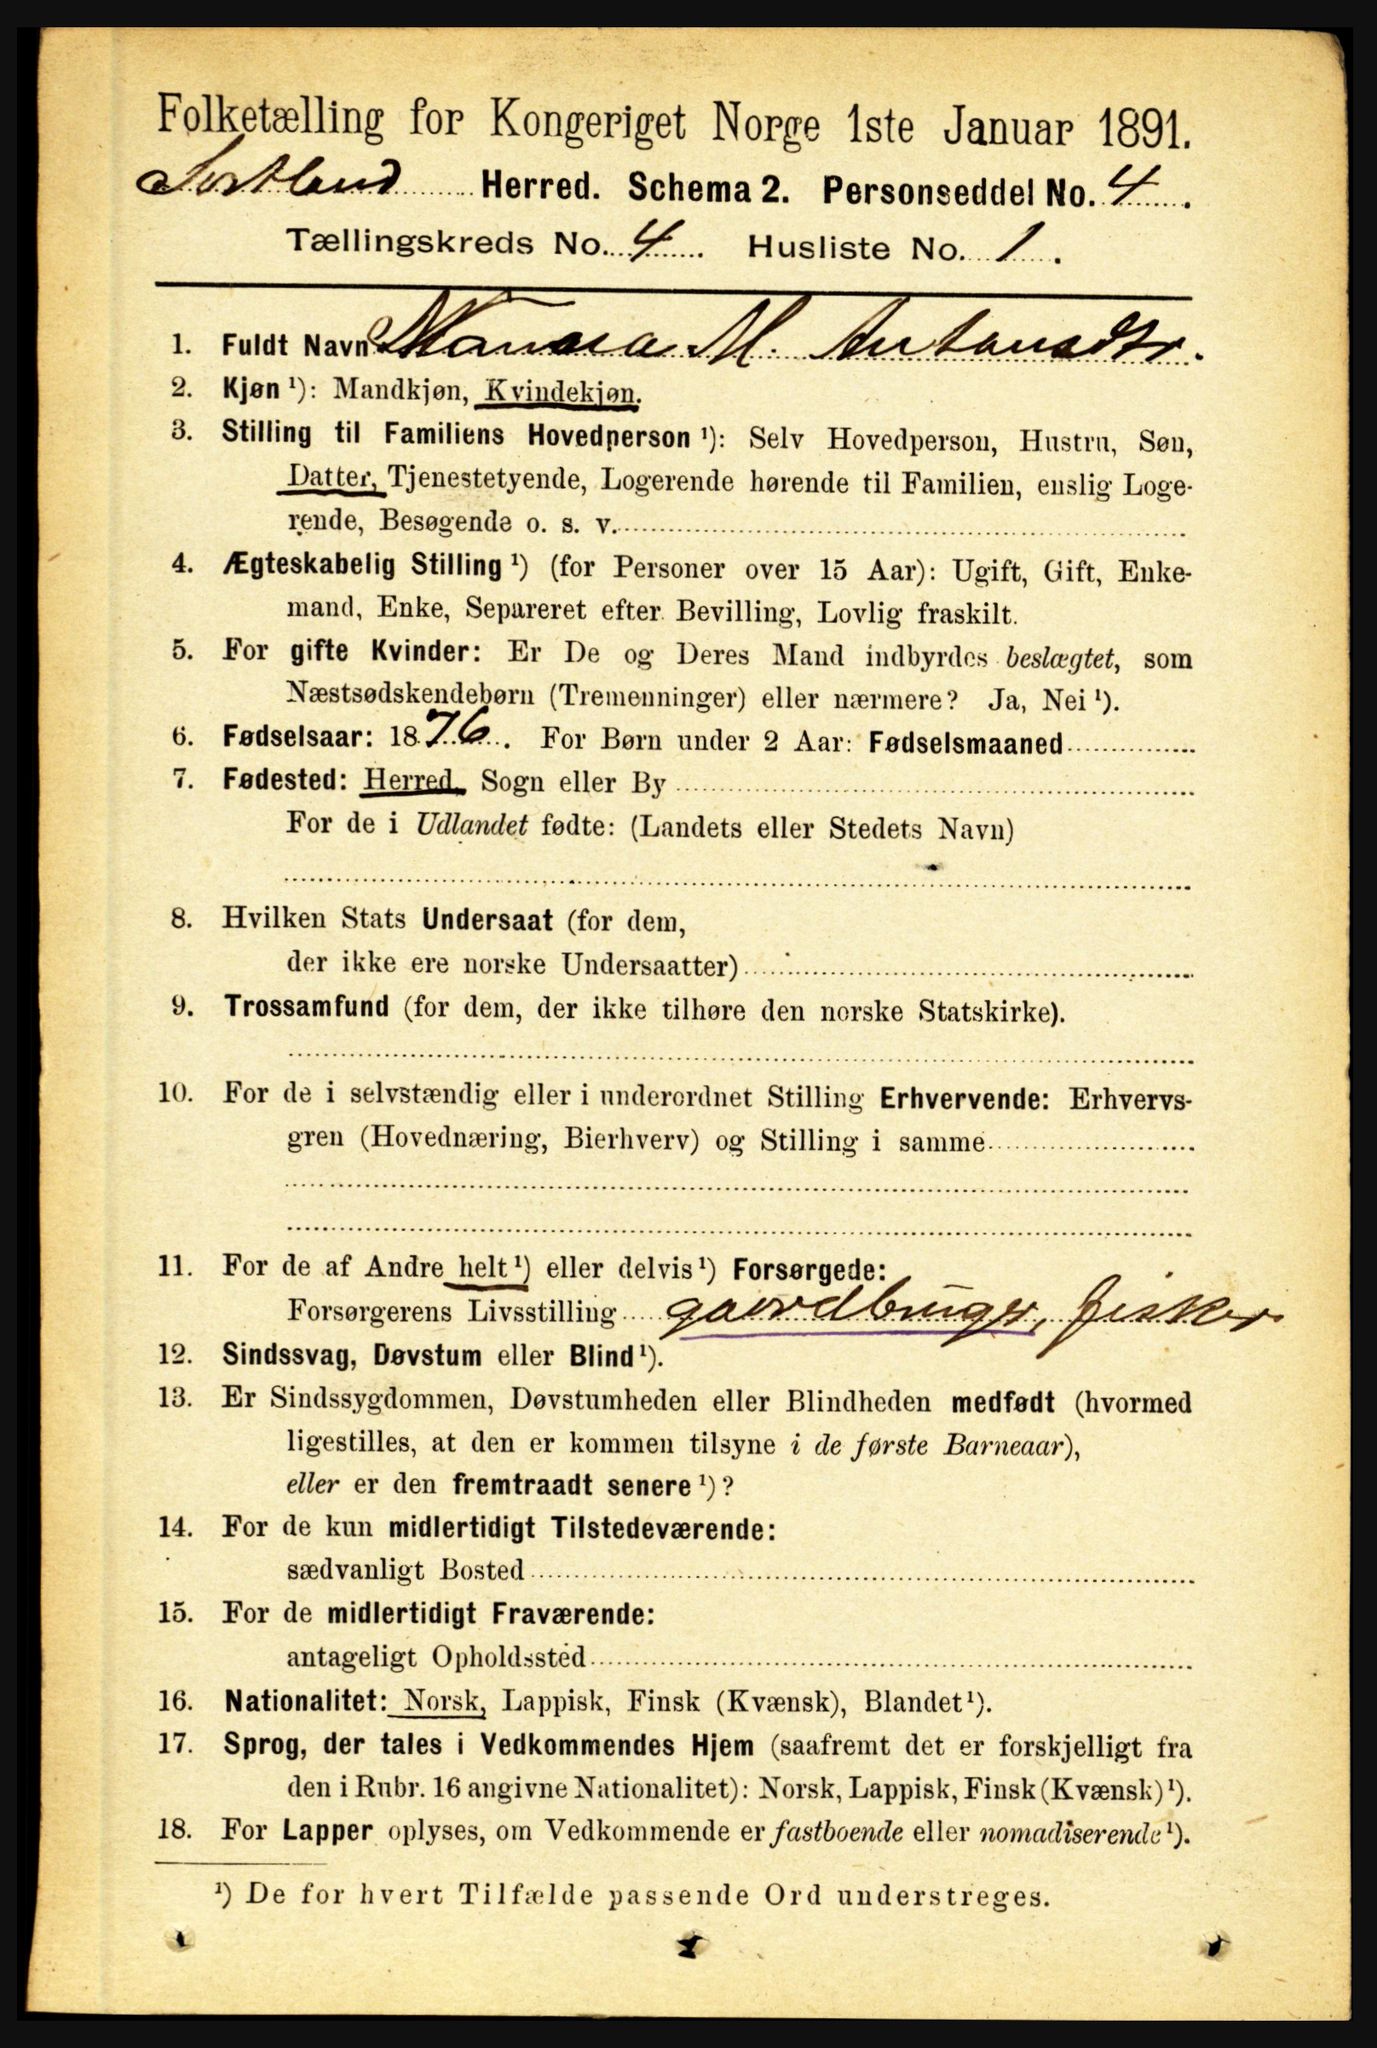 Folketælling for Kongeriget Norge 1ste Januar 1891.
Sortland Herred. Schema 2. Personseddel No. 4.
Tællingskreds No. 4. Husliste No. 1.
1. Fuldt Navn M. Antonsdtr.
2. Kjøn ¹): Mandkjøn, Kvindekjøn.
3. Stilling til Familiens Hovedperson ¹): Selv Hovedperson, Hustru, Søn,
Datter, Tjenestetyende, Logerende hørende til Familien, enslig Loge-
rende, Besøgende o. s. v.
4. Ægteskabelig Stilling ¹) (for Personer over 15 Aar): Ugift, Gift, Enke-
mand, Enke, Separeret efter Bevilling, Lovlig fraskilt.
5. For gifte Kvinder: Er De og Deres Mand indbyrdes beslægtet, som
Næstsødskendebørn (Tremenninger) eller nærmere? Ja, Nei ¹).
6. Fødselsaar: 1876. For Børn under 2 Aar: Fødselsmaaned
7. Fødested: Herred, Sogn eller By
For de i Udlandet fødte: (Landets eller Stedets Navn)
8. Hvilken Stats Undersaat (for dem,
der ikke ere norske Undersaatter)
9. Trossamfund (for dem, der ikke tilhøre den norske Statskirke).
10. For de i selvstændig eller i underordnet Stilling Erhvervende: Erhvervs-
gren (Hovednæring, Bierhverv) og Stilling i samme
11. For de af Andre helt ¹) eller delvis ¹) Forsørgede:
Forsørgerens Livsstilling gaardbruger, fisker
12. Sindssvag, Døvstum eller Blind ¹).
13. Er Sindssygdommen, Døvstumheden eller Blindheden medfødt (hvormed
ligestilles, at den er kommen tilsyne i de første Barneaar),
eller er den fremtraadt senere ¹)?
14. For de kun midlertidigt Tilstedeværende:
sædvanligt Bosted
15. For de midlertidigt Fraværende:
antageligt Opholdssted
16. Nationalitet: Norsk, Lappisk, Finsk (Kvænsk), Blandet ¹).
17. Sprog, der tales i Vedkommendes Hjem (saafremt det er forskjelligt fra
den i Rubr. 16 angivne Nationalitet): Norsk, Lappisk, Finsk (Kvænsk) ¹).
18. For Lapper oplyses, om Vedkommende er fastboende eller nomadiserende ¹).
¹) De for hvert Tilfælde passende Ord understreges.